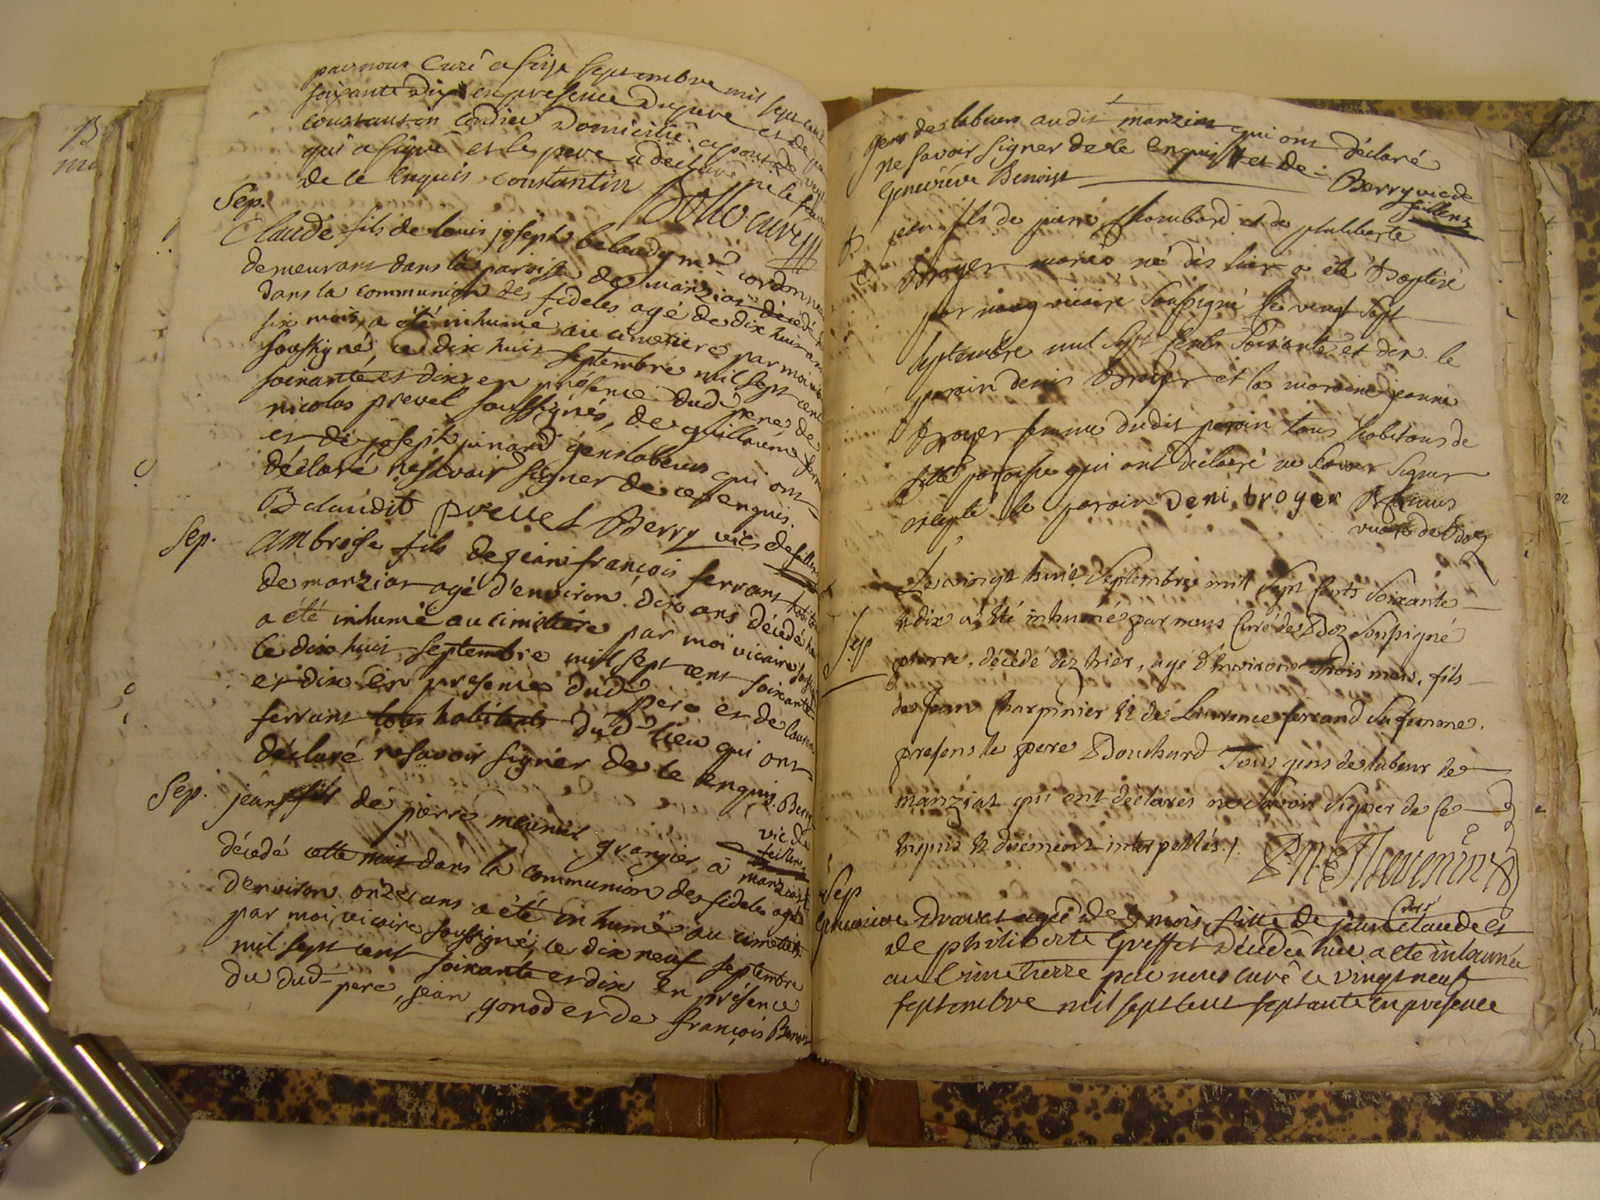 par nous Curé ce seize septembre mil sept cent
soixante dix en presence du pere et de
constantin cordier Domicilié a pont de
qui a signé et le pere a declaré ne le
de ce Enquis constantin
Bollo curé
Sep.
Claude fils de louis joseph belaudy md cordonnier
demeurant dans la paroisse de manziat décédé
dans la communion des fideles agé de dix huit ans
six mois, a été inhumé au cimetiere par moi
soussigné, ce dix huit septembre mil sept cent
soixante et dix en présence dud pere de
nicolas prevel soussignés, de guillaume
et de joseph junard gens labeurs qui ont
déclaré ne savoir signer de ce enquis.
Belaudit prevel Berry vic. de feillens
Sep.
ambroise fils de jean françois ferrant
de manziat agé d'environ dix ans décédé
a été inhumé au cimetiere par moi vicaire
ce dix huit septembre mil sept cent soixante
et dix en presence dud pere et de
ferrant tous habitants dud lieu qui ont
déclaré ne savoir signer de ce enquis. Berry
vic. de
feillens
Sep.
jean fils de pierre meunier granger à manziat
décédé cette nuit dans la communion des fideles agé
d'environ onze ans a été inhumé au cimetiere
par moi vicaire soussigné, ce dix neuf septembre
mil sept cent soixante et dix en présence
du dud pere, jean gonod et de françois Benoist
gens de labeurs audit manziat qui ont déclaré
ne savoir signer de ce enquis et de
Genevieve Benoist Berry vic de
feillens
jean fils de pierre Chombard et de philiberte
Broyer mariés né dès hier a été Baptisé
par nous vicaire soussigné le vingt sept
septembre mil sept cents soixante et dix. le
parain denis Broyer et la maraine jeanne
Broyer femme dudit parain tous habitans de
cette paroisse qui ont déclaré ne savoir signer
excepté le parain Deni, broyer
vicaire de Boz
Sep
Le vingt huit Septembre mil Sept Cents Soixante
et dix a été inhumé par nous Curé de Boz Soussigné
pierre, décédé dez hier, agé d'Environ trois mois, fils
de Jean Charpinier et de Laurence ferrand Sa femme,
presens le pere Bouchard Tous gens de labeur de
manziat qui ont déclarés ne Savoir Signer de Ce
Enquis et duement interpellés.
Thevenin
Sep
Genevieve Dravet agée de 9 mois fille de jean Claude et
de philiberte Greffet décédée hier a été inhumée
au Cimetierre par nous curé ce vingt neuf
septembre mil sept cent septante en presence